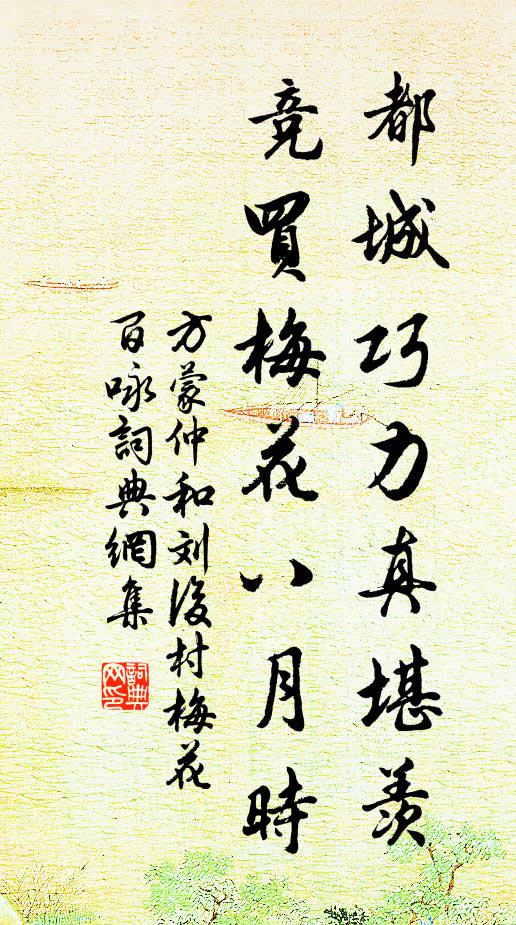 都城巧力真堪羨
竞買梅花八月時
方蒙仲和刘後村梅花
百咏詞典網集
詞典网印